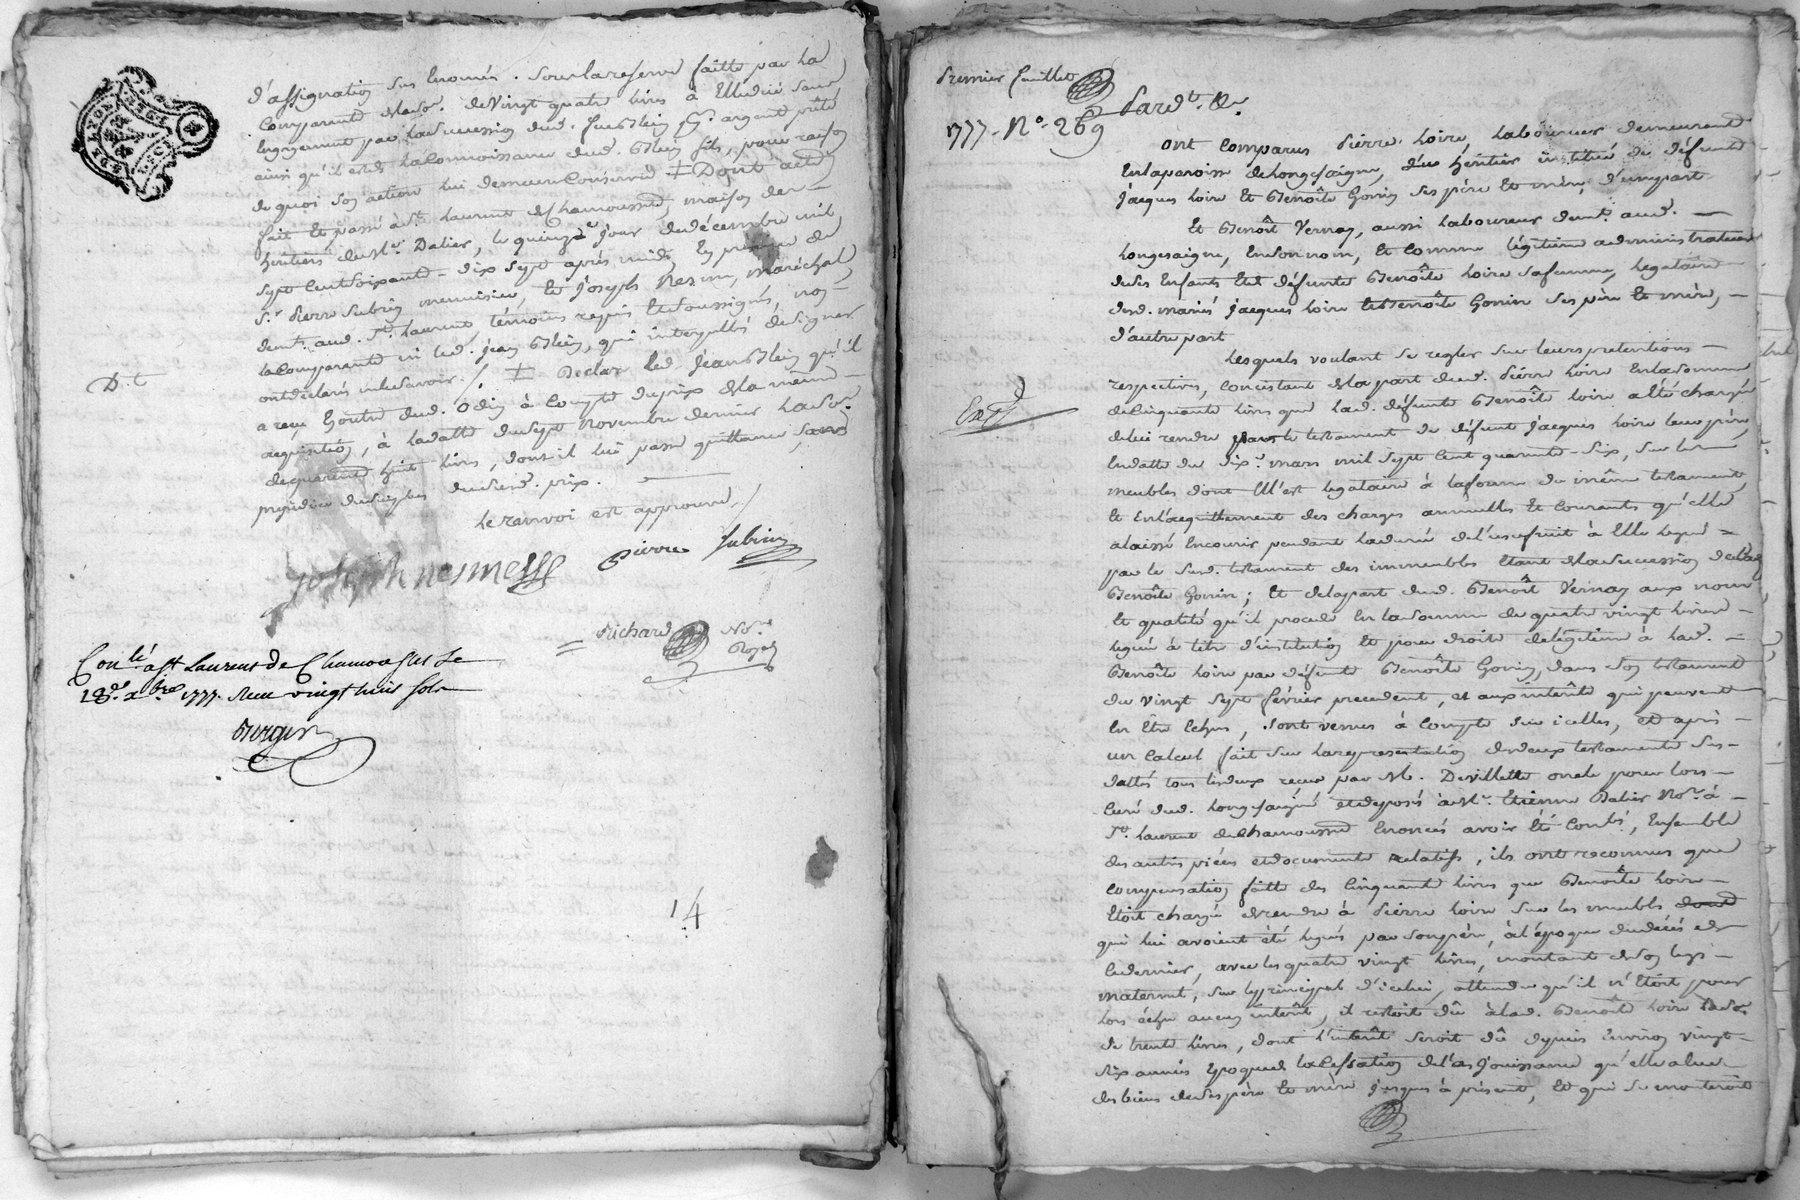 d'assignation sus énoncés. sous la reserve faitte par la
comparante de la so.e de vingt quatre livres à Elle due sans
ainsi qu'il est de la connoissance dud. fils, pour raison
de quoi son action lui demeure conservée ‡ Dont acte
fait et passé à St. Laurent de Chamousset, maison des
heritiers de Me. Dalier, le quinze.e jour de décembre mil
sept cent soixante-dix sept après midi, En présence de
Sr. Pierre Subrin menuisier, et Joseph Nesme, maréchal
demt. aud. St. Laurent, témoins requis et soussignés, non
la comparante ni led. Jean, qui interpellés de signer
ont déclaré ne le savoir ./. ‡ Déclare led. Jean qu'il
D. C.
a reçu à compte du prix de la même
acquisition, à la datte du sept novembre dernier la so.
de quarante huit livres, dont il lui passe quittance, sans
préjudice du surplus dud. prix.
Le renvoi est approuvé ./
joseph nesme Pierre Subrin
Richard No.re Royal
Con.lé à St Laurent de Chamousset le
18.e xbre 1777. Reçu vingt huit sols
14
Premier feuillet
Pardt. &
1777 - N°. 269
ont comparus Pierre Loire, laboureur demeurant
En la paroisse de Longesaigne, heritier institué de défunts
Jacques Loire et Benoîte Gonin ses père et mère, d'une part
Et Benoît Vernay, aussi laboureur demt. aud.
Longesaigne, En son nom, et comme légitime administrateur
de ses Enfants et de défunte Benoîte Loire sa femme, legataire
desd. mariés Jacques Loire et Benoîte Gonin ses père et mère,
d'autre part
Lesquels voulant se regler sur leurs pretentions
respectives, consistant de la part dud. Pierre Loire En la somme
Exp.
de Cinquante livres que lad. défunte Benoîte Loire a été chargée
de lui rendre dans le testament de défunt Jacques Loire leur père,
En datte du six.e mars mil sept cent quarante-six, sur les
meubles dont Il l'est legataire à la forme du même testament,
Et En l'acquittement des charges annuelles et courants qu'elle
a laissé Encourir pendant la durée de l'usufruit à Elle legué
par le susd. testament des immeubles Etant de la succession de lad.
Benoîte Gonin; Et de la part dud. Benoît Vernay aux noms
Et qualité qu'il procede En la somme de quatre vingt livres
legué à titre d'institution Et pour droits de légitime à lad.
Benoîte Loire par défunte Benoîte Gonin, dans son testament
du vingt sept février precedent, et aux interêts qui peuvent
En être échus, sont venus à compte sur icelles, et après
un calcul fait sur la representation desd. deux testaments sus-
dattés tous les deux reçus par M. Devillette oncle pour lors
Curé dud. Longesaigne et déposés à Me. Etienne Dalier No.re à
St. Laurent de Chamousset Enoncés avoir été Contlés, Ensemble
des autres pièces et documents relatifs, ils ont reconnus que
compensation faitte des Cinquante livres que Benoîte Loire
étoit chargée de rendre à Pierre Loire sur les meubles dont
qui lui avoient été legués par son père, à l'époque du décès de
ce dernier, avec les quatre vingt livres, montant de son legs
maternel, sur le principal d'icelui, attendu qu'il n'étoit pour
lors échu aucun interêt, il restoit dû à lad. Benoîte Loire la so.
de trente livres, dont l'interêt seroit dû depuis Environ vingt
six années Epoque de la Cessation de la Jouissance qu'elle a eue
des biens de ses père et mère jusques à présent, Et qui se monteroit